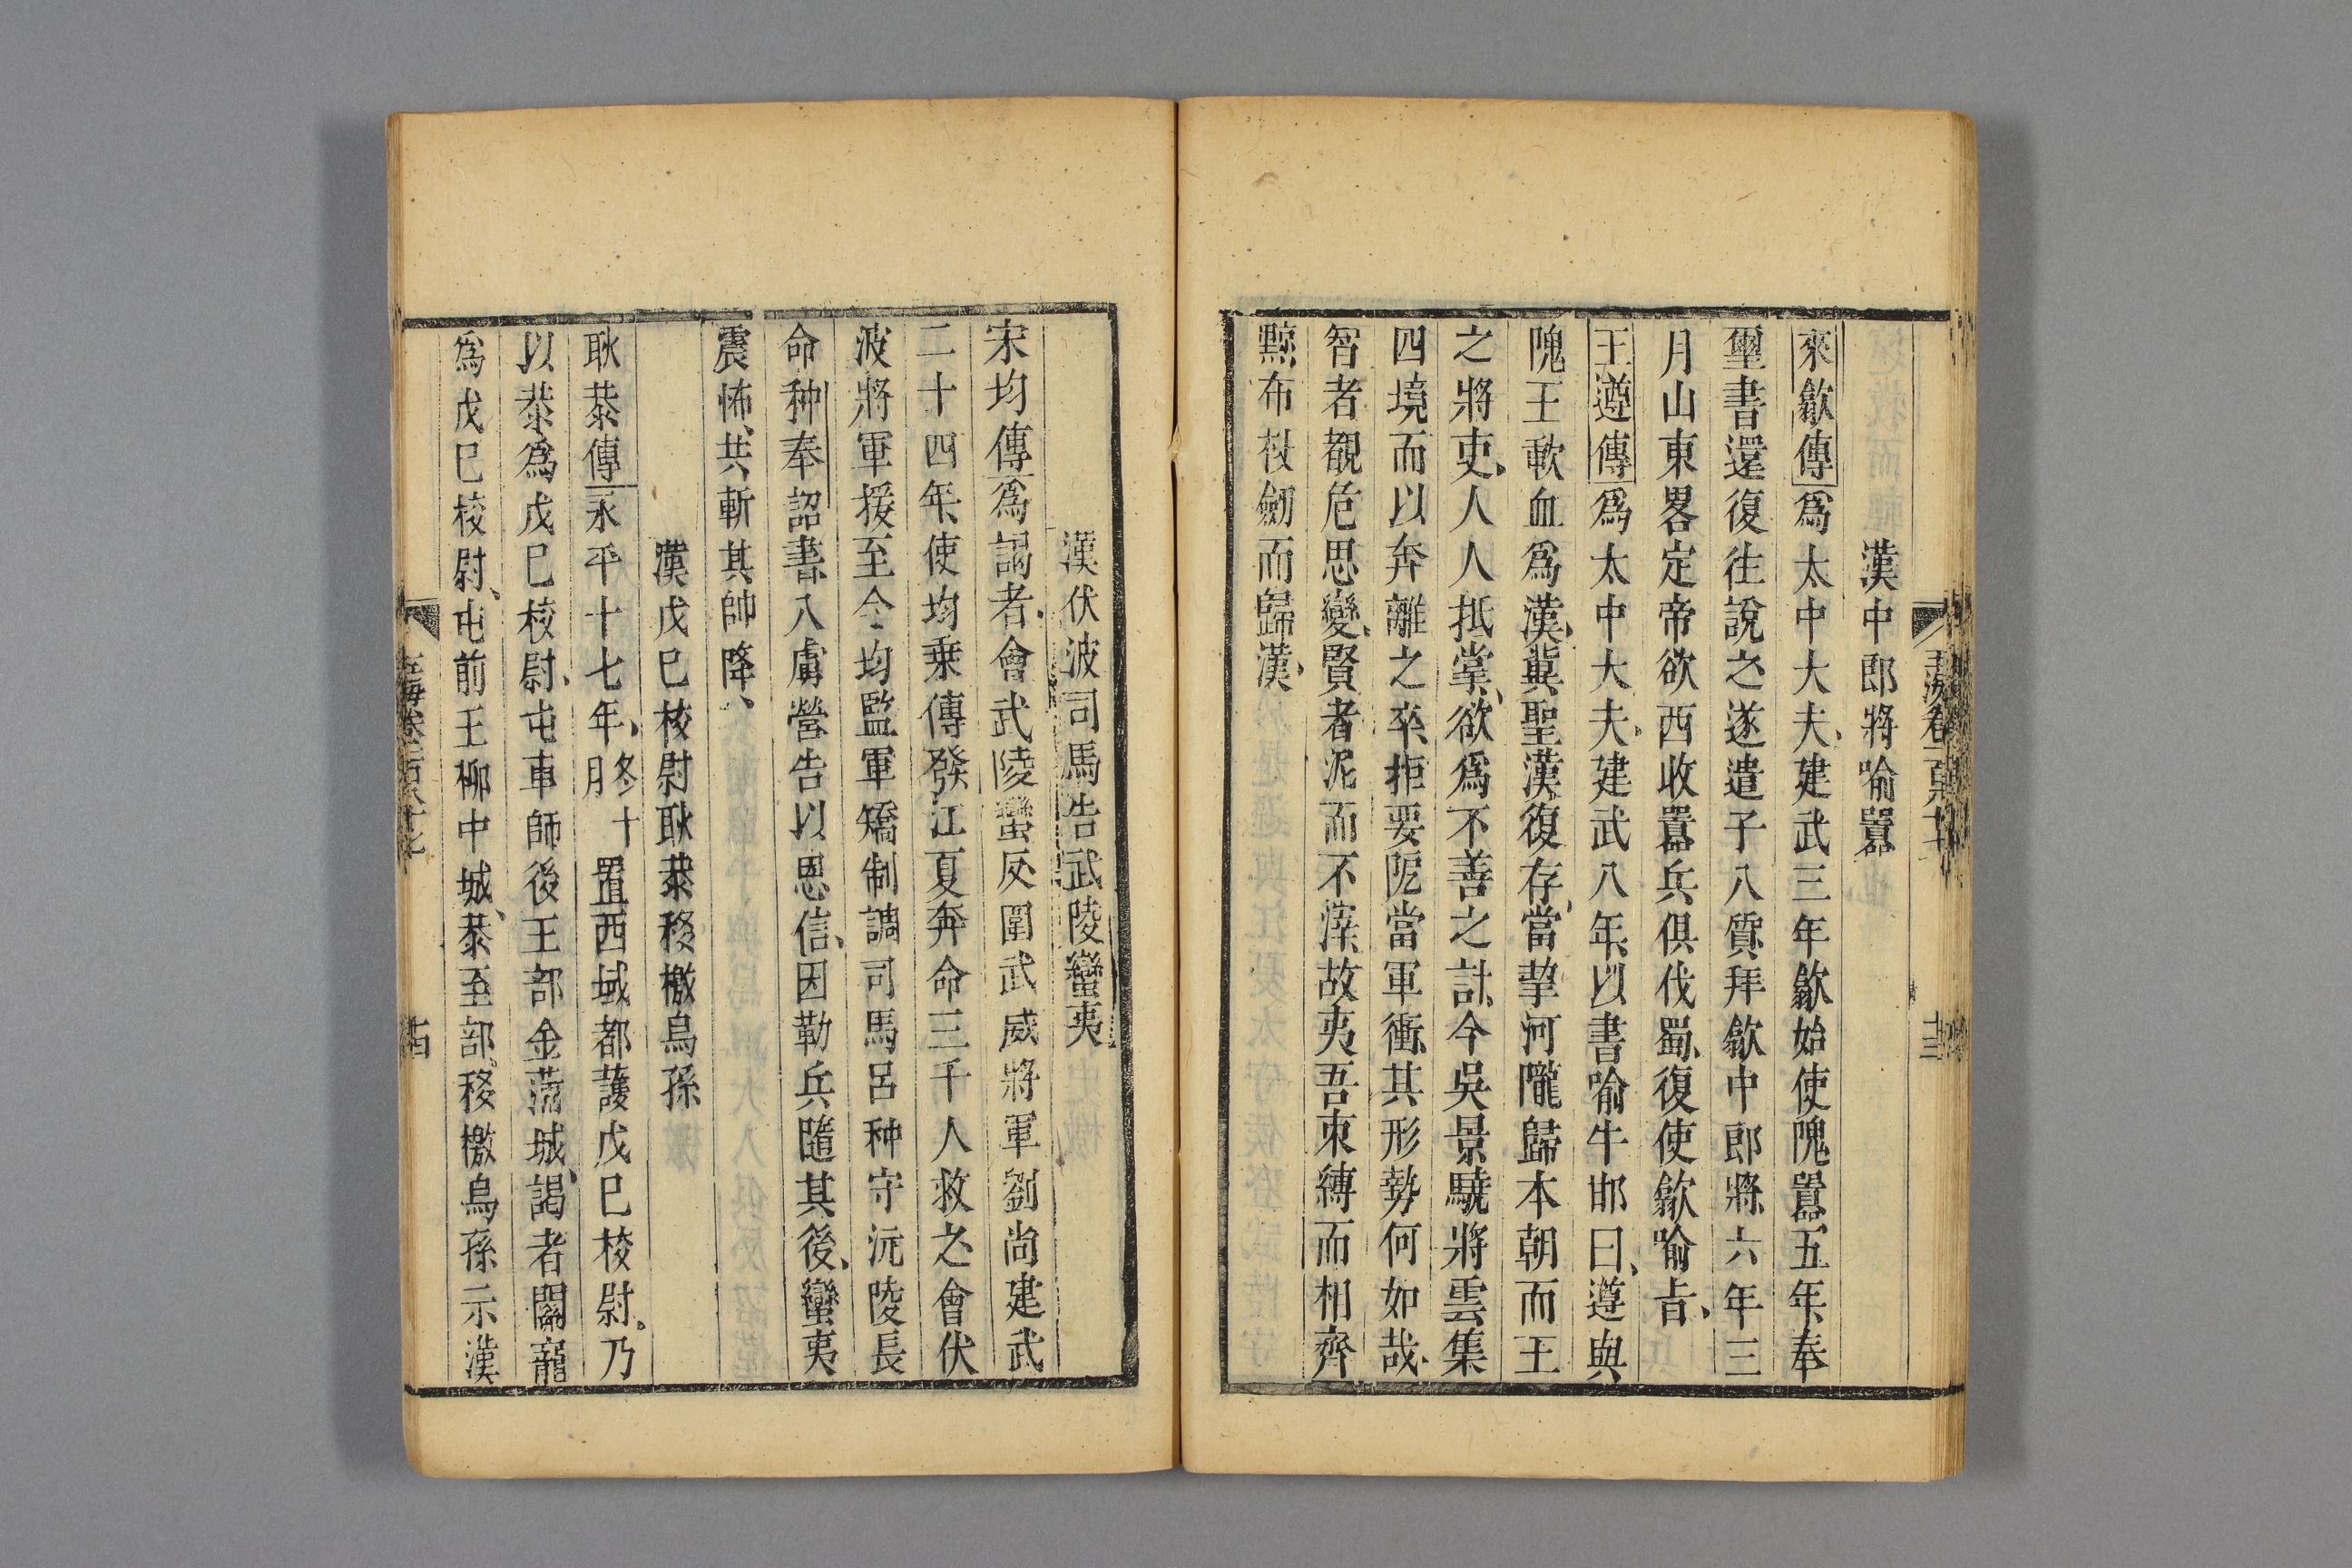 漢中郎將喻囂
來歙傳爲太中大夫建武三年歙始使隗囂五年奉
璽書還復往說之遂遣子入質拜歙中郎將六年三
月山東畧定帝欲西收囂兵俱伐蜀復使歙喻㫖
王遵傳爲太中大夫建武八年以書喻牛邯曰遵與
隗王歃血爲漢冀聖漢復存當挈河隴歸本朝而王
之將吏人人抵掌欲爲不善之計今吳景驍將雲集
四境而以奔離之卒拒要阨當軍衝其形勢何如哉
智者覩危思變賢者泥而不滓故夷吾束縛而相齊
黥布杖劒而歸漢
漢伏波司馬告武陵蠻夷
宋均傳爲謁者會武陵蠻反圍武威將軍劉尚建武
二十四年使均乗傳發江夏奔命三千人救之會伏
波將軍援至令均監軍矯制調司馬呂种守沅陵長
命种奉詔書入虜營告以恩信因勒兵隨其後蠻夷
震怖共斬其帥降
漢戊巳校尉耿恭移檄烏孫
耿恭傳永平十七年冬十月置西域都護戊巳校尉乃
以恭爲戊巳校尉屯車師後王部金蒲城謁者關寵
爲戊巳校尉屯前王柳中城恭至部移檄烏孫示漢